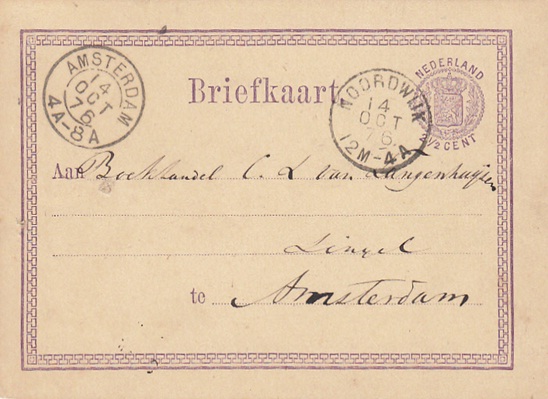 AMSTERDAM
14
OCT
76
4A-8A
Briefkaart
NOORDWIJK
14
OCT
76
12M-4A
NEDERLAND
2½ CENT
Aan Boekhandel C. L van Langenhuijsen
Singel
te Amsterdam